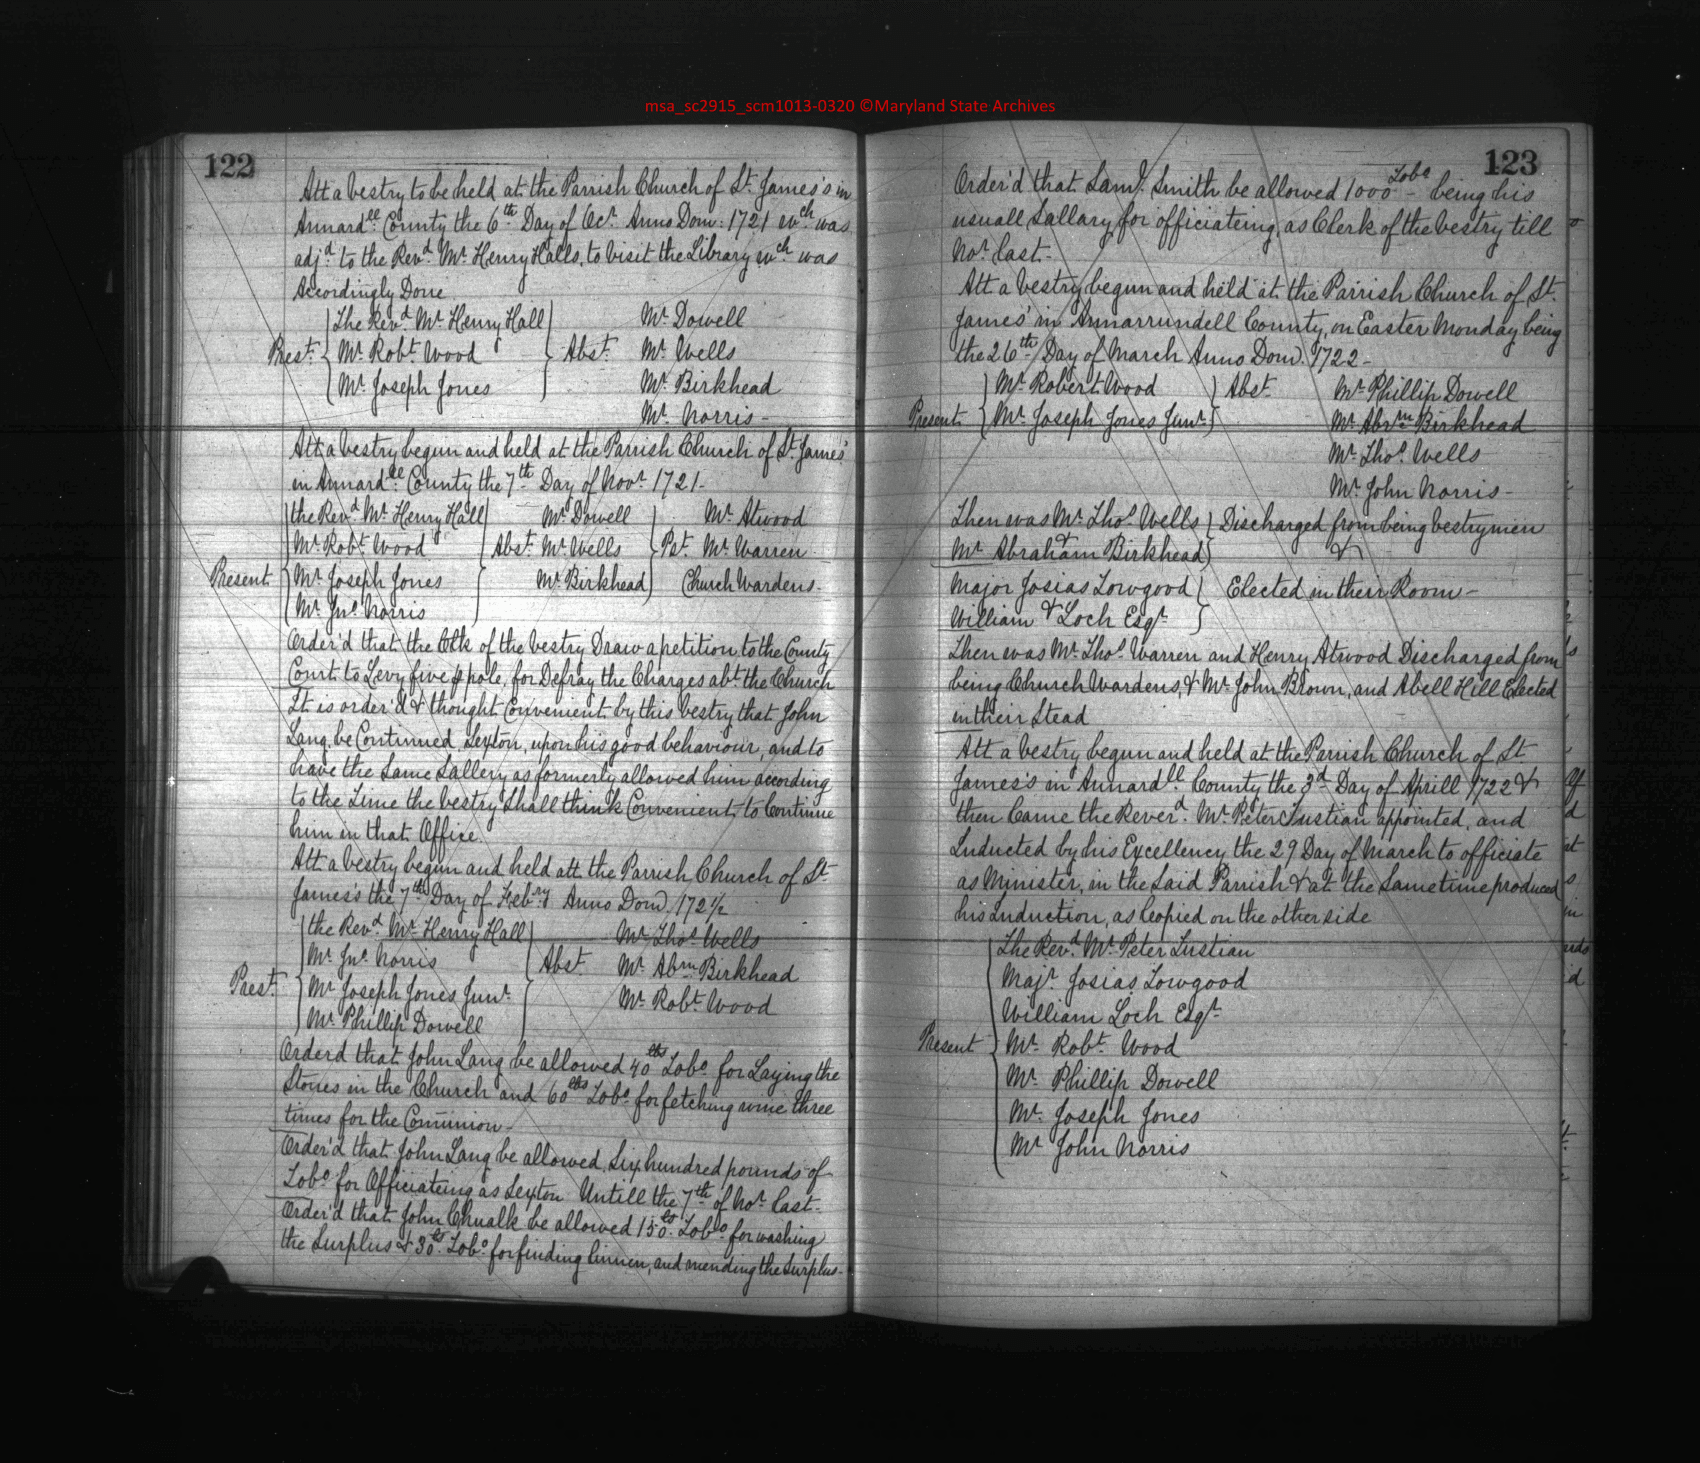 msa_sc2915_scm1013-0320 ©Maryland State Archives
122
Att a vestry to be held at the Parrish Church of St. James's in
Annard.ll County the 6th Day of Oc.r Anno Dom: 1721 wch was
adj.d to the Rev.d Mr. Henry Halls, to visit the Library wch was
Accordingly Done
The Rev.d Mr. Henry Hall Mr. Dowell
Prest. Mr. Robt. Wood Abst. Mr. Wells
Mr. Joseph Jones Mr. Birkhead
Mr. Norris-
Att a vestry begun and held at the Parrish Church of St. James'
in Annard.ll County the 7th Day of Novr. 1721-
the Rev.d Mr. Henry Hall Mr. Dowell Mr. Atwood
Mr. Robt. Wood Abst. Mr. Wells Pst. Mr. Warren
Present Mr. Joseph Jones Mr. Birkhead Church Wardens.
Mr. Jno. Norris
Order'd that the Clk of the vestry Draw a petition to the County
Court to Levy five p pole, for Defray the Charges abt. the Church
It is order'd & thought Convenient by this vestry that John
Lang be Continued Sexton, upon his good behaviour, and to
have the Same Sallery as formerly allowed him according
to the Time the vestry Shall think Convenient to Continue
him in that Office
Att a vestry begun and held att the Parrish Church of St.
James's the 7th Day of Feb.ry Anno Dom. 172½
the Rev.d Mr. Henry Hall Mr. Thos. Wells
Mr. Jno. Norris Abst Mr. Abm Birkhead
Prest. Mr. Joseph Jones Junr. Mr. Robt. Wood
Mr. Phillip Dowell
Orderd that John Lang be allowed 40 lbs Tobo. for Laying the
Stones in the Church and 60 lbs Tobo. for fetching wine three
times for the Comunion-
Order'd that John Lang be allowed Six hundred pounds of
Tobo. for Officiateing as Sexton Untill the 7th of Nor. last-
Order'd that John Chualk be allowed 150 ls Tobo. for washing
the Surplus & 30 ls. Tobo. for finding linnen, and mending the Surplus-
123
Order'd that Saml. Smith be allowed 1000 Tobo - being his
usuall Sallary for officiateing, as Clerk of the vestry till
Nor. last-
Att a vestry begun and held at the Parrish Church of St.
James' in Annarrundell County, on Easter Monday being
the 26th Day of March Anno Dom. 1722-
Mr. Robert Wood Abst. Mr. Phillip Dowell
Present Mr. Joseph Jones Junr. Mr. Abrm Birkhead
Mr. Thos. Wells
Mr. John Norris-
Then was Mr. Thos. Wells Discharged from being vestrymen
& Mr. Abraham Birkhead &
Major Josias Towgood Elected in their Room-
& William Loch Esqr.
Then was Mr. Thos. Warren and Henry Atwood Discharged from
being Church Wardens, & Mr. John Brown, and Abell Hill Elected
in their Stead
Att a vestry begun and held at the Parrish Church of St
James's in Annard.ll County the 3d Day of Aprill 1722 &
then Came the Rever.d Mr. Peter Tustian appointed, and
Inducted by his Excellency the 29 Day of March to officiate
as Minister, in the Said Parrish & at the Same time produced
his Induction, as Copied on the other side
The Rev.d Mr. Peter Tustian
Majr. Josias Towgood
William Loch Esqr.
Present Mr. Robt. Wood
Mr. Phillip Dowell
Mr. Joseph Jones
Mr. John Norris